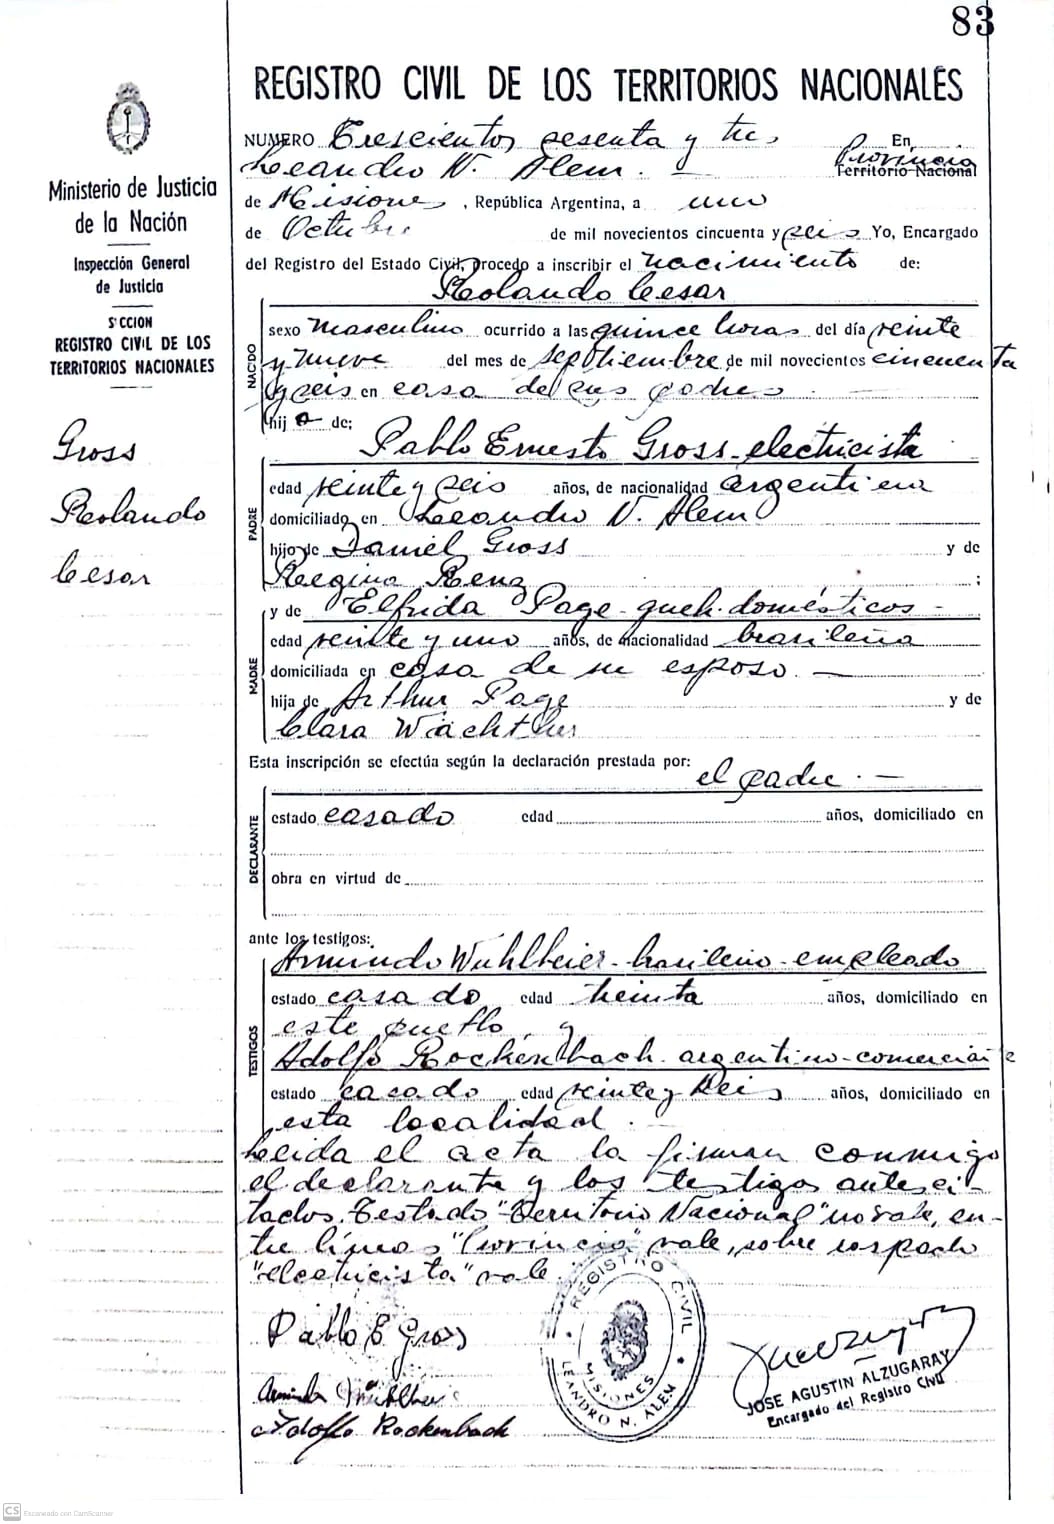 83
REGISTRO CIVIL DE LOS TERRITORIOS NACIONALES
Ministerio de Justicia
de la Nación
Inspección General
de Justicia
SECCION
REGISTRO CIVIL DE LOS
TERRITORIOS NACIONALES
Gross
Rolando
Cesar
NUMERO Trescientos sesenta y tres En
Leandro N. Alem. Provincia
Territorio Nacional
de Misiones, República Argentina, a uno
de Octubre de mil novecientos cincuenta y seis Yo, Encargado
del Registro del Estado Civil, procedo a inscribir el nacimiento de:
Rolando Cesar
NACIDO
sexo masculino ocurrido a las quince horas del día veinte
y nueve del mes de septiembre de mil novecientos cincuenta
y seis en casa de sus padres
hijo de;
Pablo Ernesto Gross - electricista
PADRE
edad veinte y seis años, de nacionalidad argentina
domiciliado en Leandro N. Alem
hijo de Daniel Gross y de
Regina Renz ;
y de Elfrida Page - queh. domésticos -
MADRE
edad veinte y uno años, de nacionalidad brasileña
domiciliada en casa de su esposo. —
hija de Arthur Page y de
Clara Wachther
Esta inscripción se efectúa según la declaración prestada por:
el padre. —
DECLARANTE
estado casado edad años, domiciliado en
obra en virtud de
ante los testigos:
Armindo Wuhlbeier - brasileño - empleado
TESTIGOS
estado casado edad treinta años, domiciliado en
este pueblo, y
Adolfo Rockenbach - argentino - comerciante
estado casado edad veinte y seis años, domiciliado en
esta localidad. —
Leida el acta la firman conmigo
el declarante y los testigos antes ci-
tados. Testado "Territorio Nacional" no vale, en-
tre líneas "Provincia" vale, sobre raspado
"electricista" vale.
Pablo E Gross
Adolfo Rockenbach
REGISTRO CIVIL
MISIONES
LEANDRO N. ALEM
JOSE AGUSTIN ALZUGARAY
Encargado del Registro Civil
CS Escaneado con CamScanner